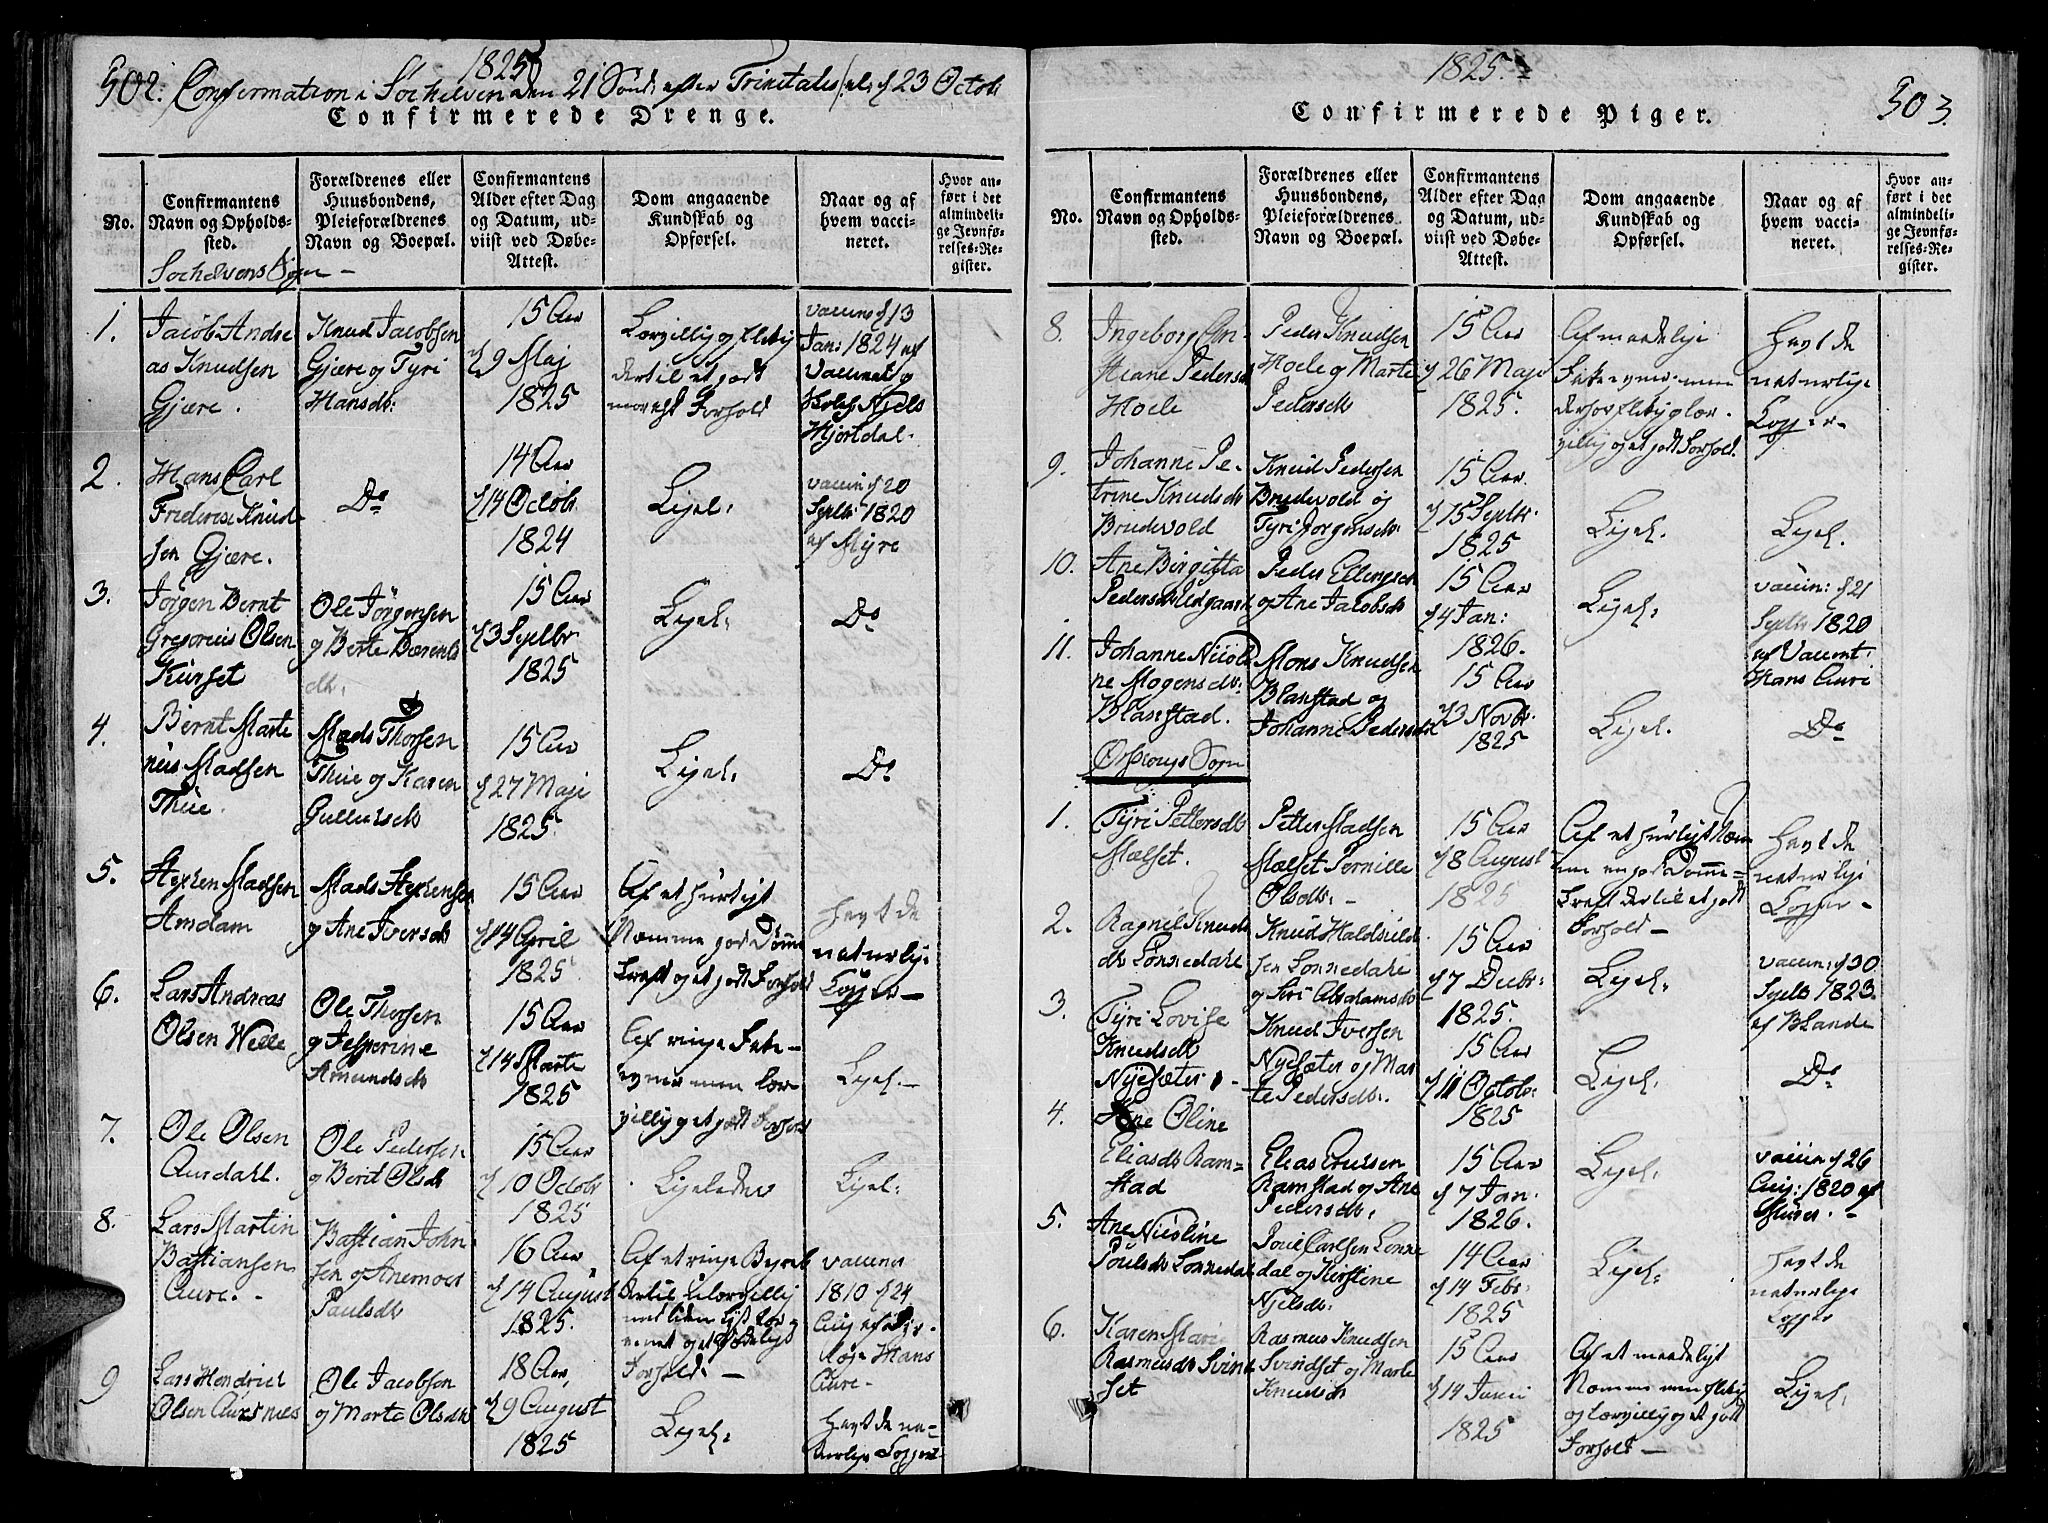 1825
502. Confirmation i Søchelven den 21 Sønd: efter Trinitatis /: el: d 23 Octobr
Confirmerede Drenge.
No.
Confirmantens
Navn og Opholds-
sted.
Forældrenes eller
Huusbondens,
Pleieforældrenes
Navn og Boepæl.
Confirmantens
Alder efter Dag
og Datum, ud-
viist ved Døbe-
Attest.
Dom angaaende
Kundskab og
Opførsel.
Naar og af
hvem vacci-
neret.
Hvor an-
ført i det
almindeli-
ge Jevnfø-
relses-Re-
gister.
Søchelvens Sogn -
1.
Jacob Andre
as Knudsen
Gjære.
Knud Jacobsen
Gjære og Tyri
Hansdtr:
15 Aar
d 9 Maj
1825
Lærvillig og flitig
dertil et godt
moralsk Forhold
vaccins d 13
Jan: 1824 af
Vaccinat
Niels
Hjortdal.
2.
Hans Carl
Frederik Knud
sen Gjære.
Do
14 Aar
d 14 Octobr
1824
Ligel:
vaccin d 20
Septbr 1820
af Myre
3.
Jørgen Bernt
Gregorius Olsen
Kurset
Ole Jørgensen
og Berte Bærents
dtr:
15 Aar
d 3 Septbr
1825
Ligel:
Do
4.
Bernt Marti
nus Madsen
Thue.
Mads Thorsen
Thue og Karen
Gullacsdtr
15 Aar
d 27 Maji
1825
Ligel:
Do
5.
Stephen Madsen
Amdam
Mads Stephensen
og Ane Iversdtr
15 Aar
d 14 April
1825
Af et hurtigt
Nemme god Dømme
kraft og et godt Forhold
havt de
naturlige
Kopper -
6.
Lars Andreas
Olsen Welle
Ole Thorsen
og Jesperine
Amundsdtr
15 Aar
d 14 Marts
1825
Af ringe Fatte-
evner men lær-
villig og et godt Forhold
Ligel. -
7.
Ole Olsen
Aurdahl.
Ole Pedersen
og Berit Olsdtr
15 Aar
d 10 Octobr
1825
Ligeledes
Ligel:
8.
Lars Martin
Bastiansen
Aure. -
Bastian John
sen og Anemoer
Paulsdtr
16 Aar
d 14 August
1825.
vaccins
1810 d 24
Aug af
Hans
Aure -
9
Lars Hendrich
Olsen Aursnæs
Ole Jacobsen
og Marte Olsdtr
18 Aar
d 9 August
1825
Ligel:
havt de na-
turlige Kopper
1825.
503.
Confirmerede Piger.
No.
Confirmantens
Navn og Opholds-
sted.
Forældrenes eller
Huusbondens,
Pleieforældrenes
Navn og Boepæl.
Confirmantens
Alder efter Dag
og Datum, ud-
viist ved Døbe-
Attest.
Dom angaaende
Kundskab og
Opførsel.
Naar og af
hvem vacci-
neret.
Hvor an-
ført i det
almindeli-
ge Jevnfø-
relses-Re-
gister.
8.
Ingeborg
Pedersdtr
Hole
Peder Knudsen
Hole og Marte
Pedersdtr
15 Aar
d 26 Maji
1825.
Af maadelige
Fatteevner men
derhos flitig og lær-
villig og et godt Forhold.
Havt de
naturlige
Kopper -
9.
Johanne Pe-
trine Knudsdtr
Brudevold
Knud Pedersen
Brudevold og
Tyri Jørgensdtr
15 Aar
d 15 Septbr.
1825
Ligel.
Ligel.
10.
Ane Birgitta
Pedersdtr Uldgaard
Peder Ellingsen
og Ane Jacobsdtr
15 Aar
d 4 Jan:
1826.
Ligel:
vaccin: d 21
Septbr 1820
af Vaccinat:
Hans Aure
11.
Johanne Nicoli
ne Mogensdtr:
Blakstad.
Mons Knudsen
Blakstad og
Johanne Pedersdtr
15 Aar
d 3 Novbr.
1825
Ligel.
Do
Ørskougs Sogn
1.
Tyri Pettersdtr
Mælset.
Petter Madsen
Mælset Pernille
Olsdtr: -
15 Aar
d 8 August
1825
Af et hurtigt Nem
me en god Dømme=
kraft dertil et godt
Forhold -
Havt de
naturlige
Kopper -
2.
Ragnil Knuds
dtr Lønnedahl
Knud Haldvild
sen Lønnedahl
og Siri Absalamsdtr
15 Aar
d 7 Decbr:
1825.
Ligel:
vaccin: d 30
Septbr 1823.
af Blande
3.
Tyri Lovise
Knudsdtr
Nysæter. -
Knud Iversen
Nysæter og Mar
te Pedersdtr.
15 Aar
d 11 Octobr:
1825
Ligel.
Do
4.
Ane Oline
Eliasdtr Ram=
stad
Elias
Ramstad og Ane
Pedersdtr:
15 Aar
d 7 Jan.
1826.
Ligel:
vaccin d 26
Aug: 1820 af
5.
Ane
Poulsdtr Lønnedal
Poul Carlsen Lønne
dal og Kirstine
Nielsdtr:
14 Aar
d 14 Febr:
1825
Ligel:
havt de
naturlige
Kopper
6.
Karen Marie
Rasmusdtr Svind
set
Rasmus Knudsen
Svindset og Marte
Knudsdtr
15 Aar
d 14 Junii
1825
Af et maadeligt
Nemme men flitig
og lærvillig og et godt
Forhold -
Ligel: